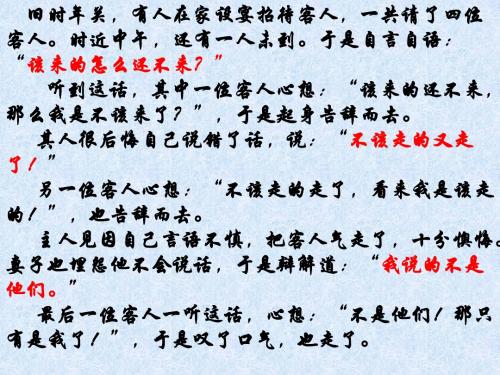 旧时年关，有人在家设宴招待客人，一共请了四位
客人。时近中午，还有一人未到。于是自言自语：
“该来的怎么还不来？”
听到这话，其中一位客人心想：“该来的还不来，
那么我是不该来了？”，于是起身告辞而去。
其人很后悔自己说错了话，说：“不该走的又走
了！”
另一位客人心想：“不该走的走了，看来我是该走
的！”，也告辞而去。
主人见因自己言语不慎，把客人气走了，十分懊悔。
妻子也埋怨他不会说话，于是辩解道：“我说的不是
他们。”
最后一位客人一听这话，心想：“不是他们！那只
有是我了！”，于是叹了口气，也走了。